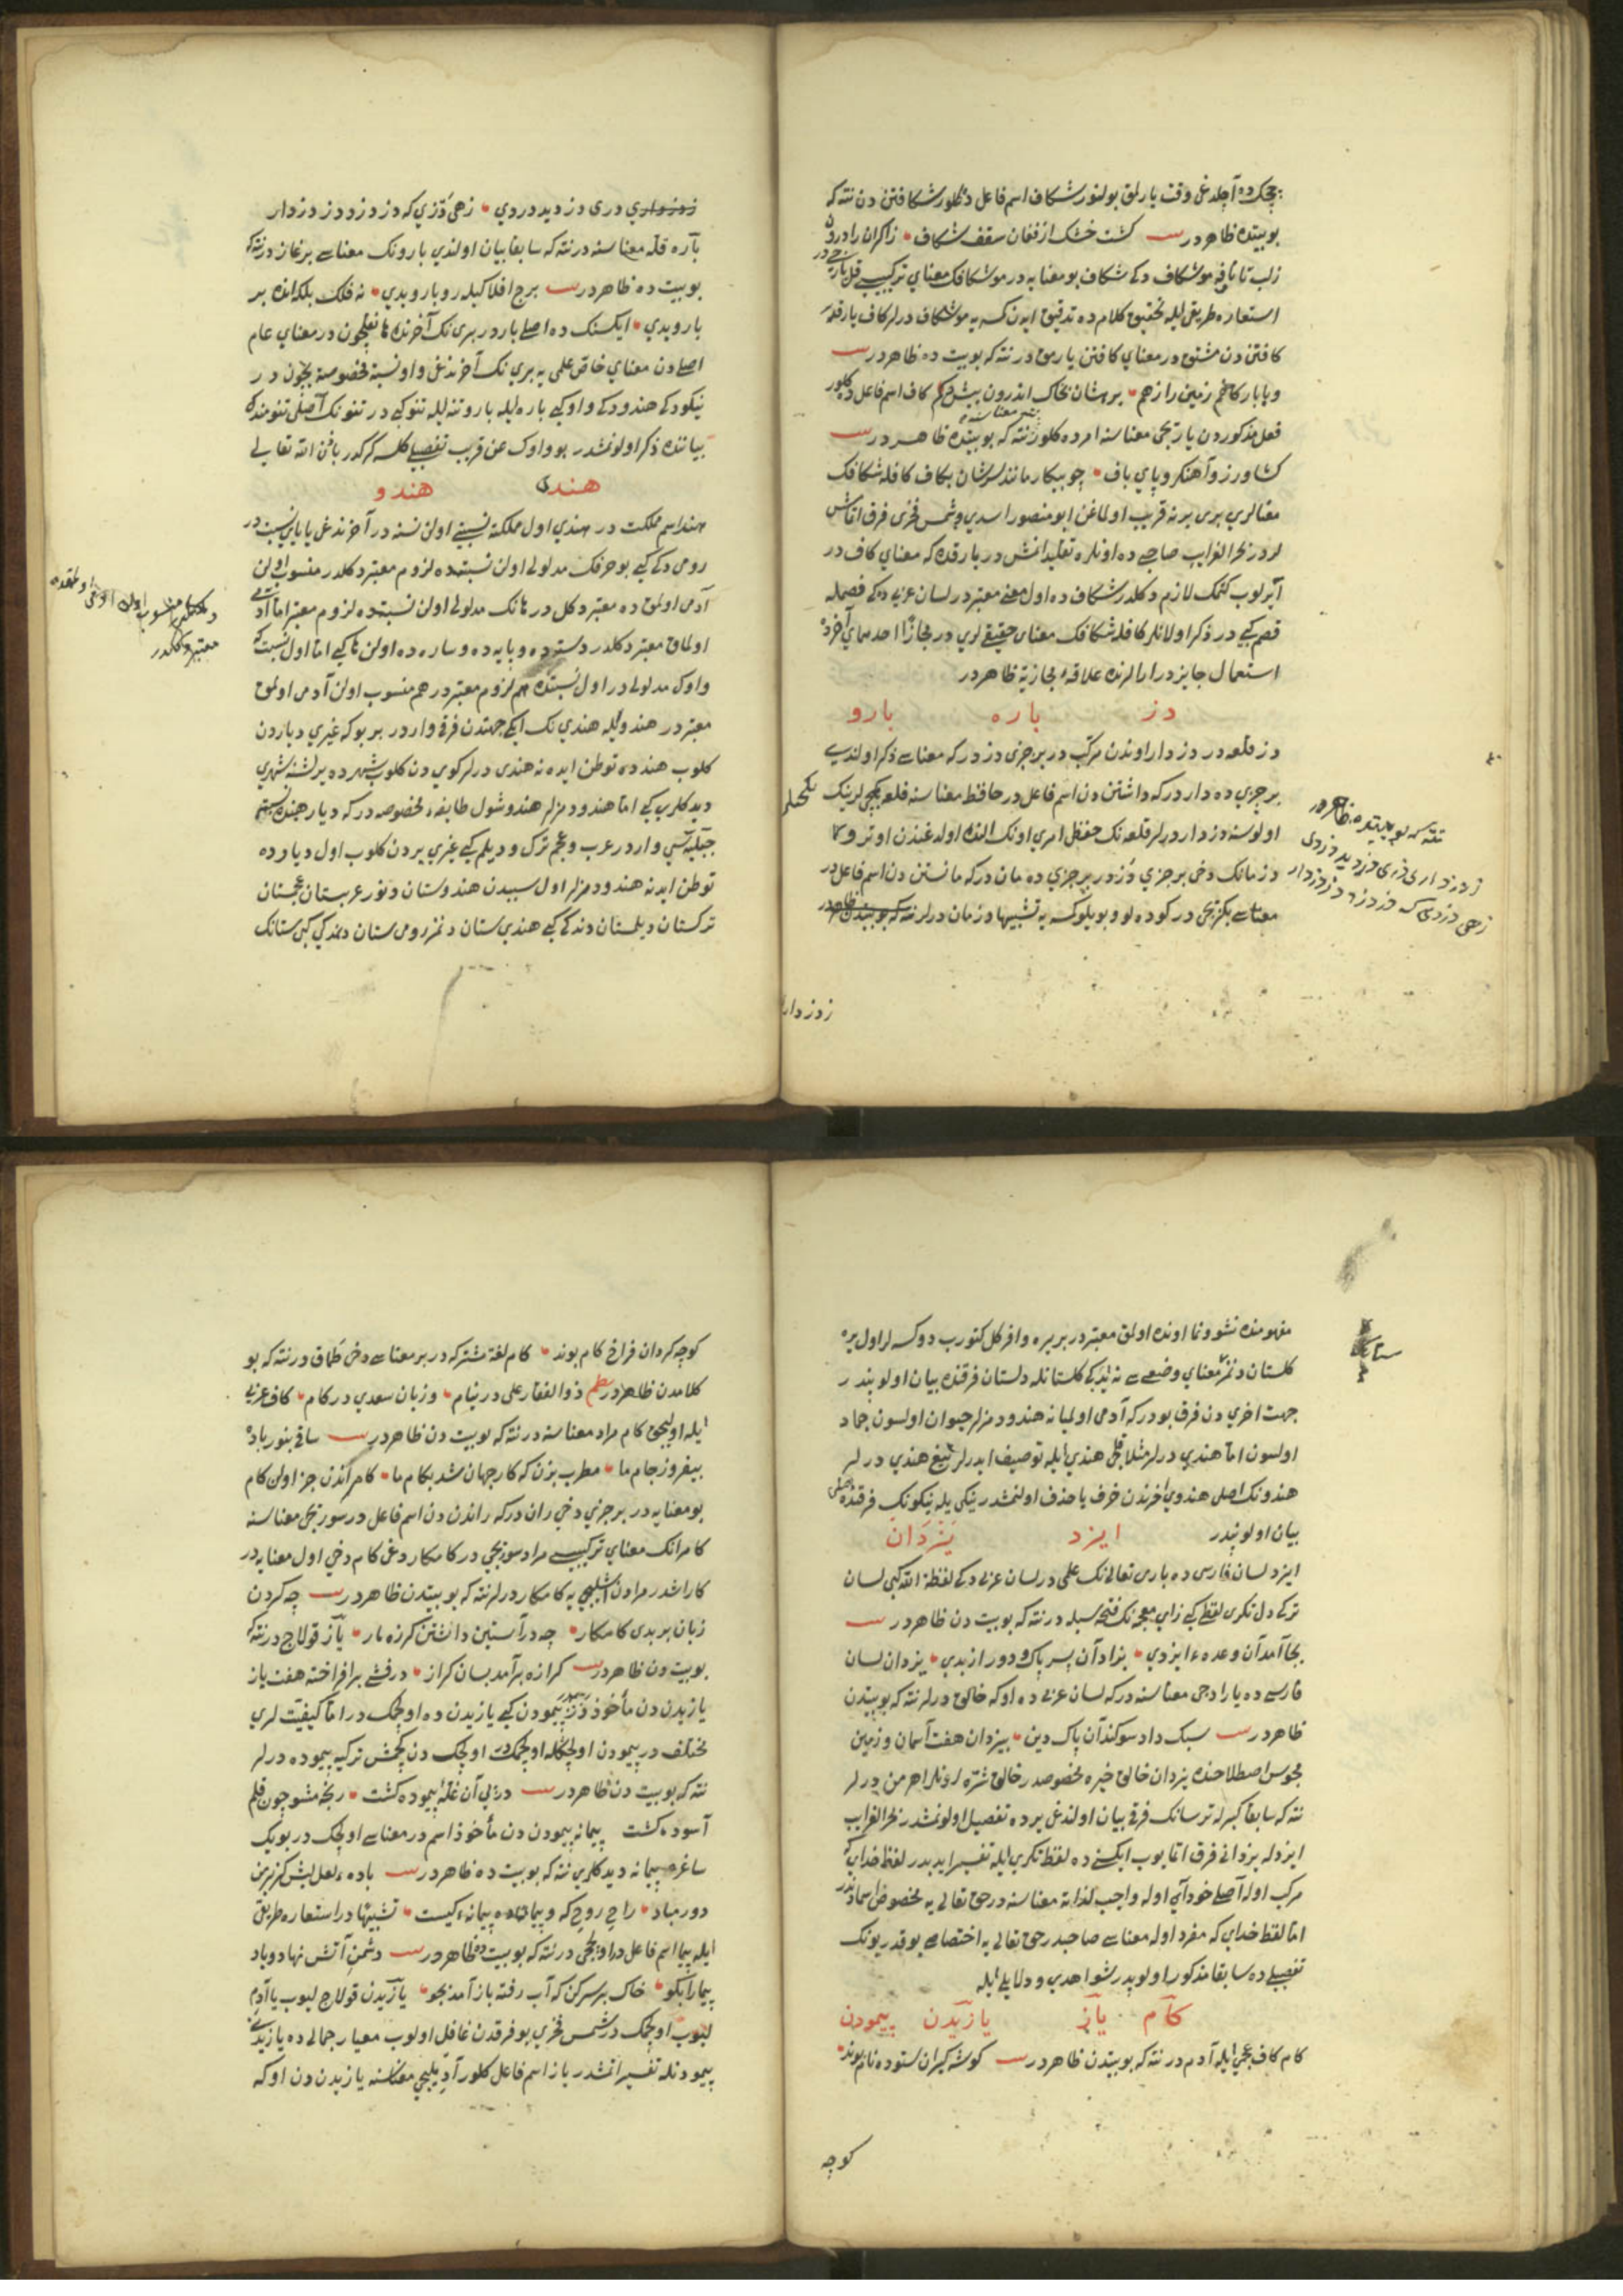 چچک ده آچلدغی وقت یارلمق بولنور شکاف اسم فاعل دخی کلور شکافتن دن نته که
بو بیتده ظاهر در کشت خشک از فغان سقف شکاف زاکران را درون
زلب تا ناف موشکاف دکی شکاف بو معنایه در موشکافک معنای ترکیبی قل یاریجی در
استعاره طریقی ایله تحقیق کلام ده تدقیق ایدن کسه یه موشکاف درلر کاف یارقدر
کافتن دن مشتق در معنای کافتن یارمق در نته که بو بیت ده ظاهر در
کاف اسم فاعل دخی کلور
فعل مذکوردن یاریجی معناسنه امر ده کلور نته که بو بیتده ظاهر در
کشاورز و آهنکر و پای باف چو بیکار مانند سرشان بکاف کافله شکافک
معنالری بری برنه قریب اولماغن ابو منصور اسدی و شمس فخری فرق اتمامش
لردر بحر الغرایب صاحبی ده اونلره تقلید اتمش در یارقده که معنای کاف در
آیرلوب کتمک لازم دکلدر شکاف ده اول معنی معتبر در لسان عربی ده کی فصمله
قصم کبی در ذکر اولانلر کافله شکافک معنای حقیقی لری در مجازا احدهمای آخرده
استعمال جایز در ارالرنده علاقۀ مجازیة ظاهر در
دز باره بارو
دز قلعه در دزدار اوندن مرکب در بر جزی دز در که معناسی ذکر اولندی
بر جزی ده دار در که داشتن دن اسم فاعل در حافظ معناسنه قلعه بکجی لرینک
اولوسنه دزدار درلر قلعه نک حفظ امری اونک النده اولدغندن اوترو
دزمانک دخی بر جزی دز در بر جزی ده مان در که مانستن دن اسم فاعل در
معناسی بکزیجی در کوده لو و بویلو کسه یه تشبیها دزمان درلر نته که بو بیتدن ظاهر در
نته که بو بیتده ظاهر در
ز دزداری دزی دزدید دزدی
زهی دزدی که دزدزد و دزدزدار
زدزداری
زدزداری دزی دزدید دزدی زهی دزدی که دزدزد و دزدزدار
باره قلعه معناسنه در نته که سابقا بیان اولندی بارونک معناسی برغاز در نته که
بو بیت ده ظاهر در برج افلاکیله رو بارو بدی نه فلک بلکه اندن بر
بارو بدی ایکسنک ده اصلی بار در برینک آخرنده ها نقلیچون در معنای عام
اصلی دن معنای خاص علمی یه برینک آخرندغی واو نسبة مخصوصة ایچون در
نیکو دکی هندو دکی واو کبی باره ایله بارو تنه ایله تنو کبی در
بیاننده ذکر اولونمشدر بو واوک عن قریب تفصیلی کلسه کرکدر باذن الله تعالی
هندی هندو
هند اسم مملکت در هندی اول مملکته نسبتی اولن نسنه در آخرندغی یا یای نسبت در
رومی دکی کبی بو حرفک مدلولی اولن نسبتده لزوم معتبر دکلدر منسوب اولن
آدمی اولمق ده معتبر دکل در هانک مدلولی اولن نسبتده لزوم معتبر اما آدمی
اولماق معتبر دکلدر دسته ده و پایه ده و ساره ده اولن ها کبی اما اول نسبت که
واوک مدلولی در اول نسبتده هم لزوم معتبر در هم منسوب اولن آدمی اولمق
معتبر در هندو ایله هندی نک ایکی جهتدن فرقی وار در بر بو که غیری دیاردن
کلوب هند ده توطن ایدنه هندی درلر کویدن کلوب شهرده یرلشنه شهری
دیدکلری کبی اما هندو دمزلر هندو شول طایفۀ مخصوصه در که دیار هنده نسبتم
جبلیه سی وار در عرب و عجم ترک و دیلم کبی غیری یردن کلوب اول دیارده
توطن ایدنه هندو دمزلر اول سببدن هندوستان دنور عربستان عجمستان
ترکستان دیلمستان دندکی کبی هندی ستان دنمز رومی ستان دنمدکی کبی ستانک
معتبر دکلدر
مفهومنده نشو و نما اونده اولمق معتبر در بر یره وافر کل کتورب دوکسه لر اول یره
کلستان دنمز معنای وضعی سی نه ایدکی کلستانله دلستان فرقنده بیان اولوندی در
جهت اخری دن فرق بو در که آدمی اولمیانه هندو دمزلر حیوان اولسون جماد
اولسون اما هندی درلر مثلا قلجی هندی ایله توصیف ایدرلر تیغ هندی درلر
هندونک اصلی هندوی آخرندن حرف یا حذف اولنمشدر نیکی ایله نیکونک فرقنده تفصیلی
بیان اولوندیدر ایزد یزدان
ایزد لسان فارسی ده باری تعالی نک علمی در لسان عربی دکی لفظة الله کبی لسان
ترکی دل تکری لفظی کبی زای معجمه نک فتحه سیله در نته که بو بیت دن ظاهر در
بجا آمد آن وعدۀ ایزدی بزاد آن پسر پاک و دور از بدی یزدان لسان
فارسی ده یارادجی معناسنه در که لسان عربی ده اوکه خالق درلر نته که بو بیتدن
ظاهر در سبک داد سوکند آن پاک دین بیزدان هفت آسمان و زمین
مجوس اصطلاحنده یزدان خالق خیره مخصوصدر خالق شره اونلر اهرمن درلر
نته که سابقا کبرله ترسانک فرقی بیان اولندغی یرده تفصیل اولونمشدر بحر الغرایب
ایزدله یزدانی فرق اتمایوب ایکسنی ده لفظ تکری ایله تفسیر ایدیدر لفظ خدای که
مرکب اوله اصلی خودآی اوله واجب لذاته معناسنه در حق تعالی یه مخصوص اسمادندر
اما لفظ خدای که مفرد اوله معناسی صاحبدر حق تعالی یه اختصاصی یوقدر بونک
تفصیلی ده سابقا مذکور اولوپدر شواهدی و دلایلی ایله
کام یاز یازیدن پیمودن
کام کاف عجمی ایله آدم در نته که بو بیتدن ظاهر در کوشه کیران ستوده نام بوند
کوچه
کوچه کردان فراخ کام بوند کام لغة مشترکه در بر معناسی دخی طماق در نته که بو
کلامدن ظاهر در نظم ذوالفقار علی در نیام و زبان سعدی در کام کاف عربی
ایله اولیجق کام مراد معناسنه در نته که بو بیت دن ظاهر در ساقی بنور باده
بیفروز جام ما مطرب بزن که کار جهان شد بکام ما کامراندن جز اولن کام
بو معنایه در بر جزی دخی ران در که راندن دن اسم فاعل در سوریجی معناسنه
کامرانک معنای ترکیبیسی مراد سوریجی در کامکار دغی کام دخی اول معنایه در
کامکار درلر نته که بو بیتدن ظاهر در چه کردن
زبان بر بدی کامکار چه در آستین داشتن کرزه مار یاز قولاج در نته که
بو بیت دن ظاهر در کرازه برآمد بسان کراز درفشی برافراخته هفت یاز
یازیدن دن مأخوذ در پیمودن کبی یازیدن ده اولچمک در اما کیفیت لری
مختلف در پیمودن اولچکله اولچمک در اولچک دن کچمش ترکیه پیموده درلر
نته که بو بیت دن ظاهر در درپی آن غله پیموده کشت رنجه مشو چون قلم
آسوده کشت پیمانه پیمودن دن مأخوذ اسم در معناسی اولچک در بویک
ساغره پیمانه دیدکلری نته که بو بیت ده ظاهر در باده لعل لبش کزین
دور مباد راح روح که و پیمان ده پیمانه کیست تشبیها در استعاره طریقی
ایله پیما اسم فاعل در اولچیجی در نته که بو بیت ده ظاهر در دشمن آتش نهاد و باد
پیما را بکو خاک بر سر کن که آب رفته باز آمد بجو یازیدن قولاج لیوب یا آدم
لیوب اولچمک در شمس فخری بو فرقدن غافل اولوب معیار جمالی ده یازیدنی
پیمودنله تفسیر اتمشدر یاز اسم فاعل کلور آدیملیجی معناسنه یازیدن دن اوکه